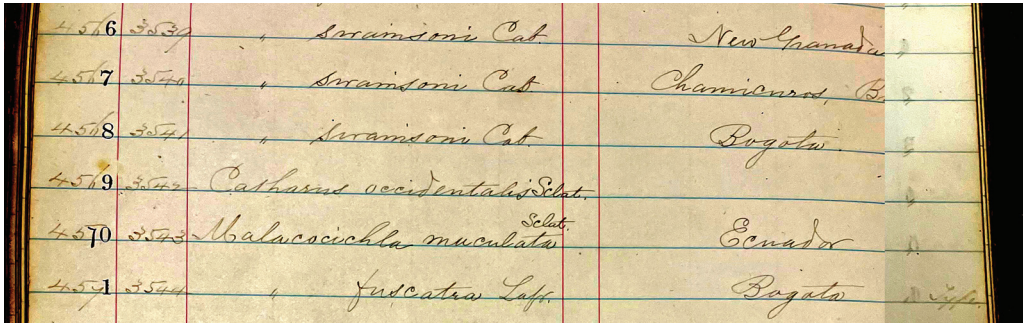 4566 3539 " swainsoni Cab. New Granada
4567 3540 " swainsoni Cab Chamicuros, B.
4568 3541 " swainsoni Cab. Bogota.
4569 3542 Catharus occidentalis Sclat.
4570 3543 Malacocichla maculata Sclat. Ecuador
4571 3544 " fuscatra Lafr. Bogota Type.